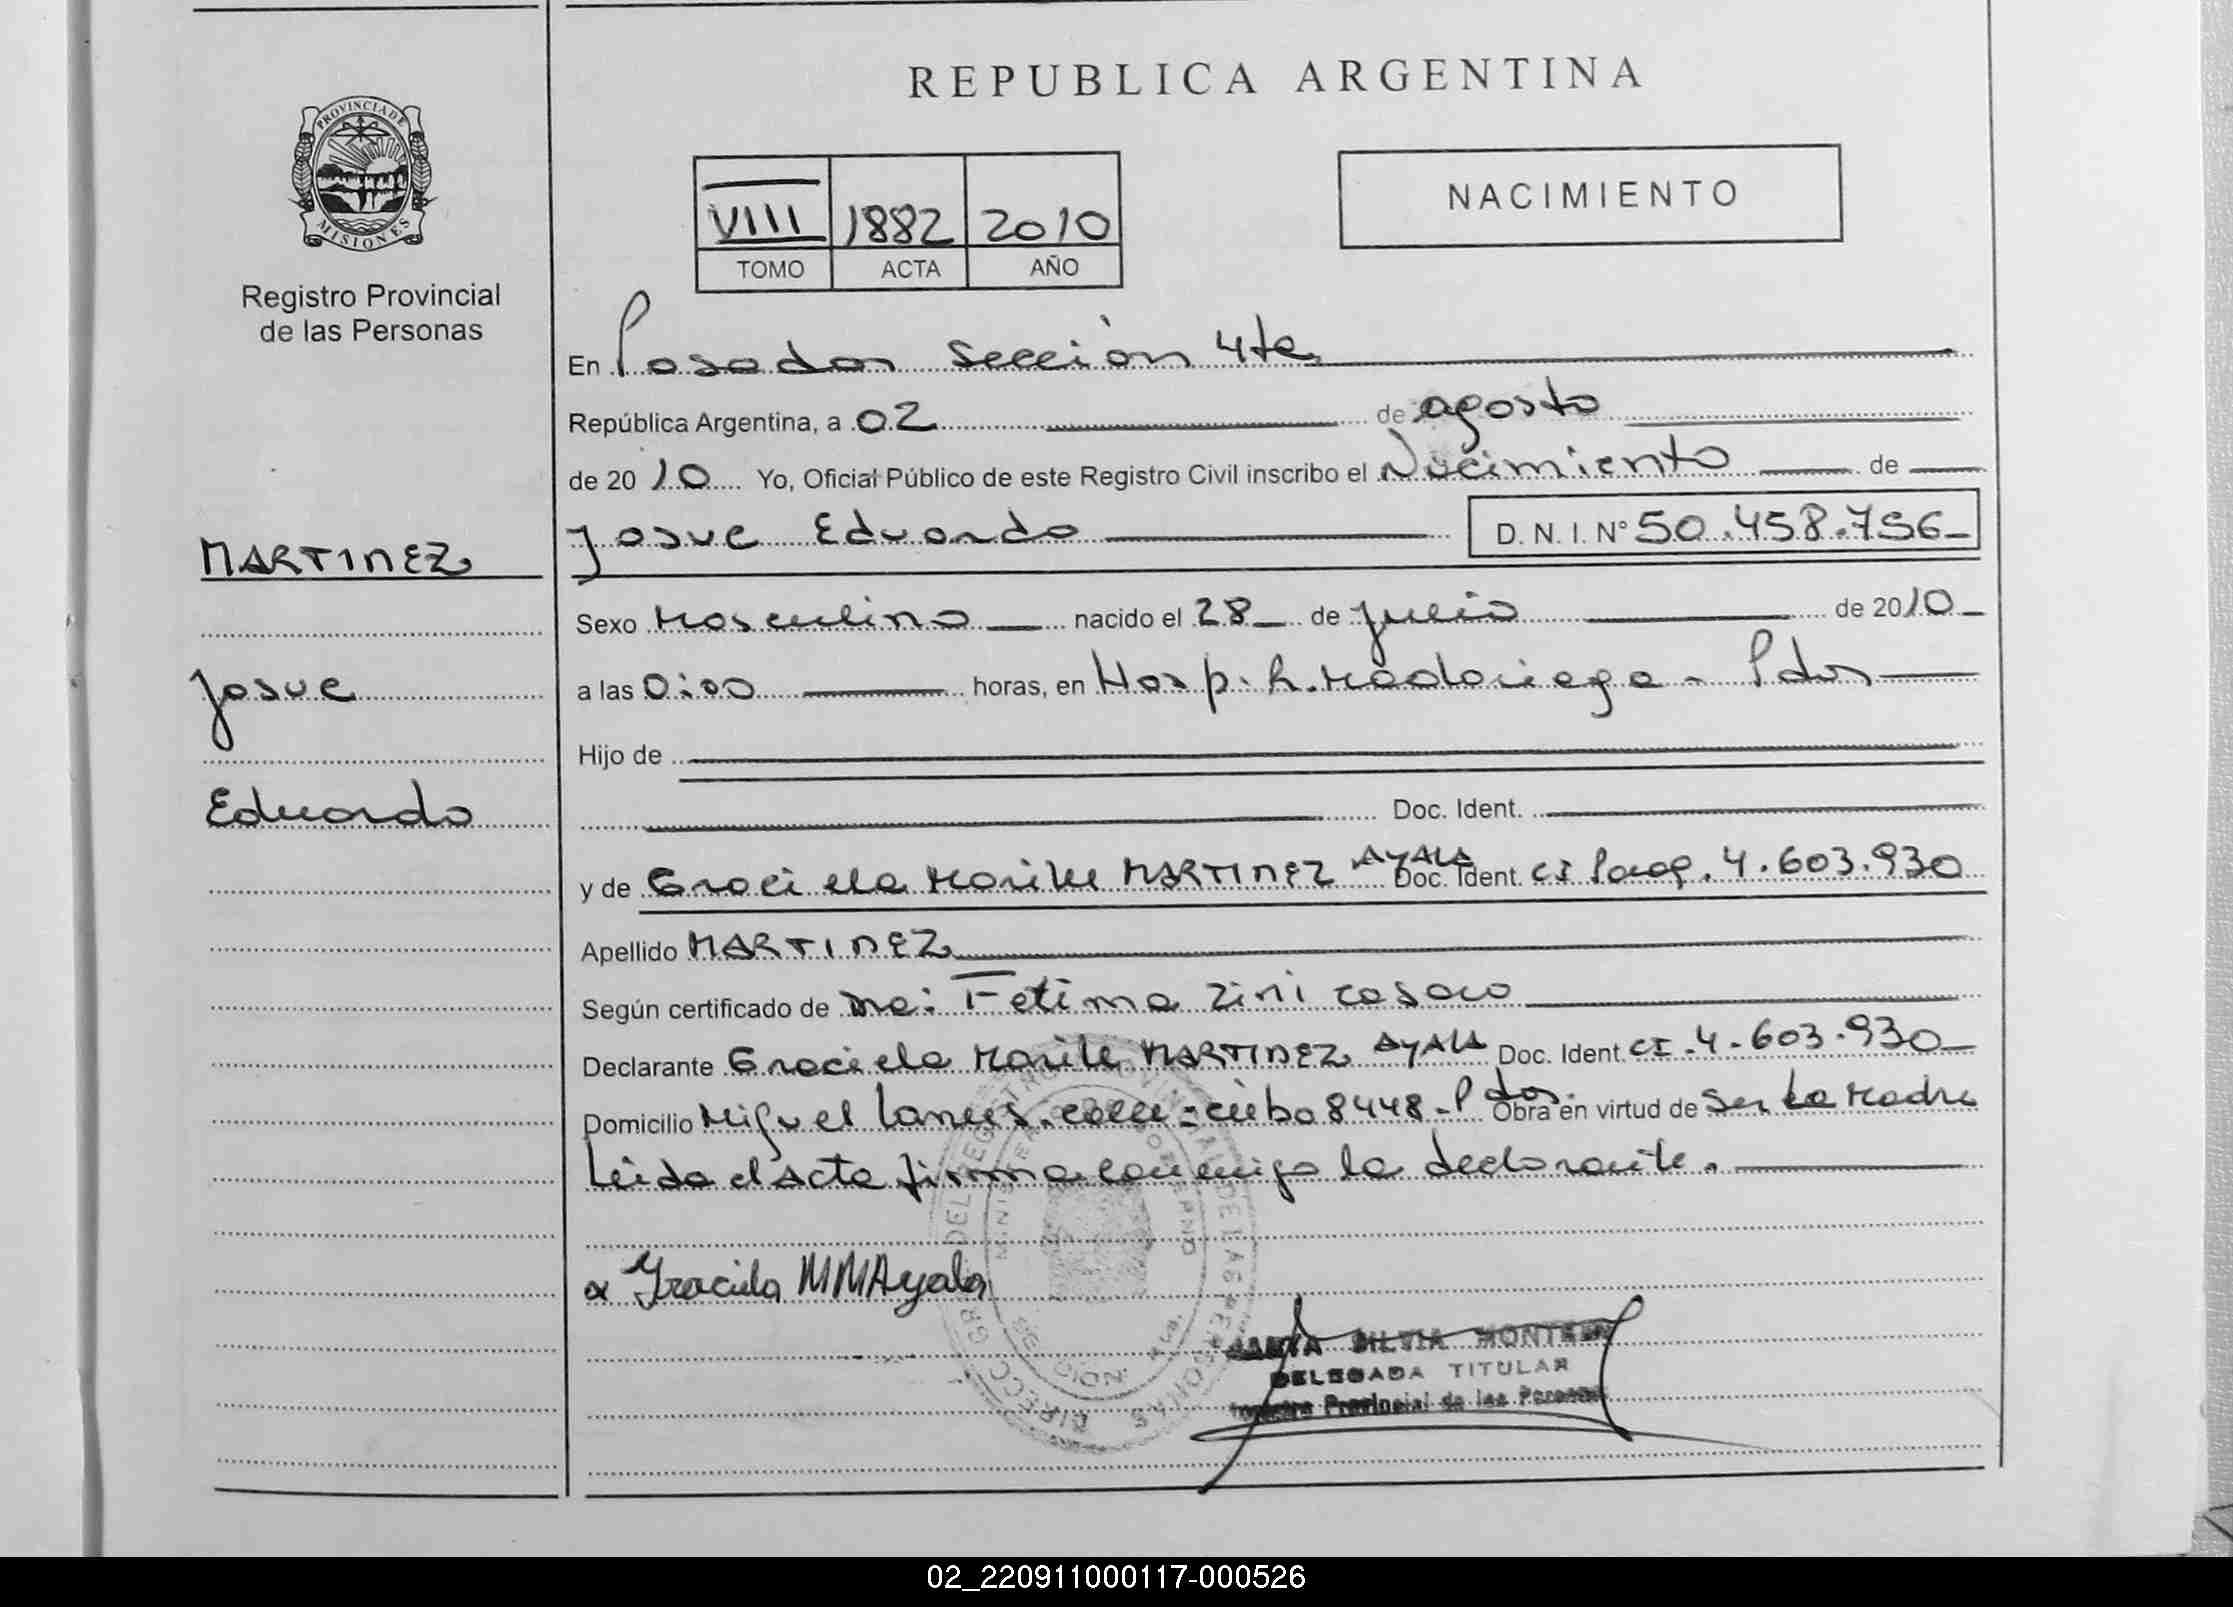 REPUBLICA ARGENTINA
PROVINCIA DE MISIONES
Registro Provincial
de las Personas
VIII 1882 2010
TOMO ACTA AÑO
NACIMIENTO
En Posadas Sección 4ta
República Argentina, a 02 de agosto
de 2010 Yo, Oficial Público de este Registro Civil inscribo el Nacimiento de
Josue Eduardo D. N. I. N° 50.458.756
MARTINEZ
Josue
Eduardo
Sexo Masculino nacido el 28 de julio de 2010
a las 0:00 horas, en Hosp. R. Madariaga - Pdas
Hijo de
Doc. Ident.
y de Graciela Marile MARTINEZ AYALA Doc. Ident. CI Parag. 4.603.930
Apellido MARTINEZ
Según certificado de Dra: Fatima Zini
Declarante Graciela Marile MARTINEZ AYALA Doc. Ident. CI. 4.603.930
Domicilio Miguel Lanus. calle: cuba 8448 - Pdas. Obra en virtud de Ser La Madre
Leida el Acta firma conmigo la declarante.
Graciela M M Ayala
SILVIA
DELEGADA TITULAR
Registro Provincial de las Personas
02_220911000117-000526